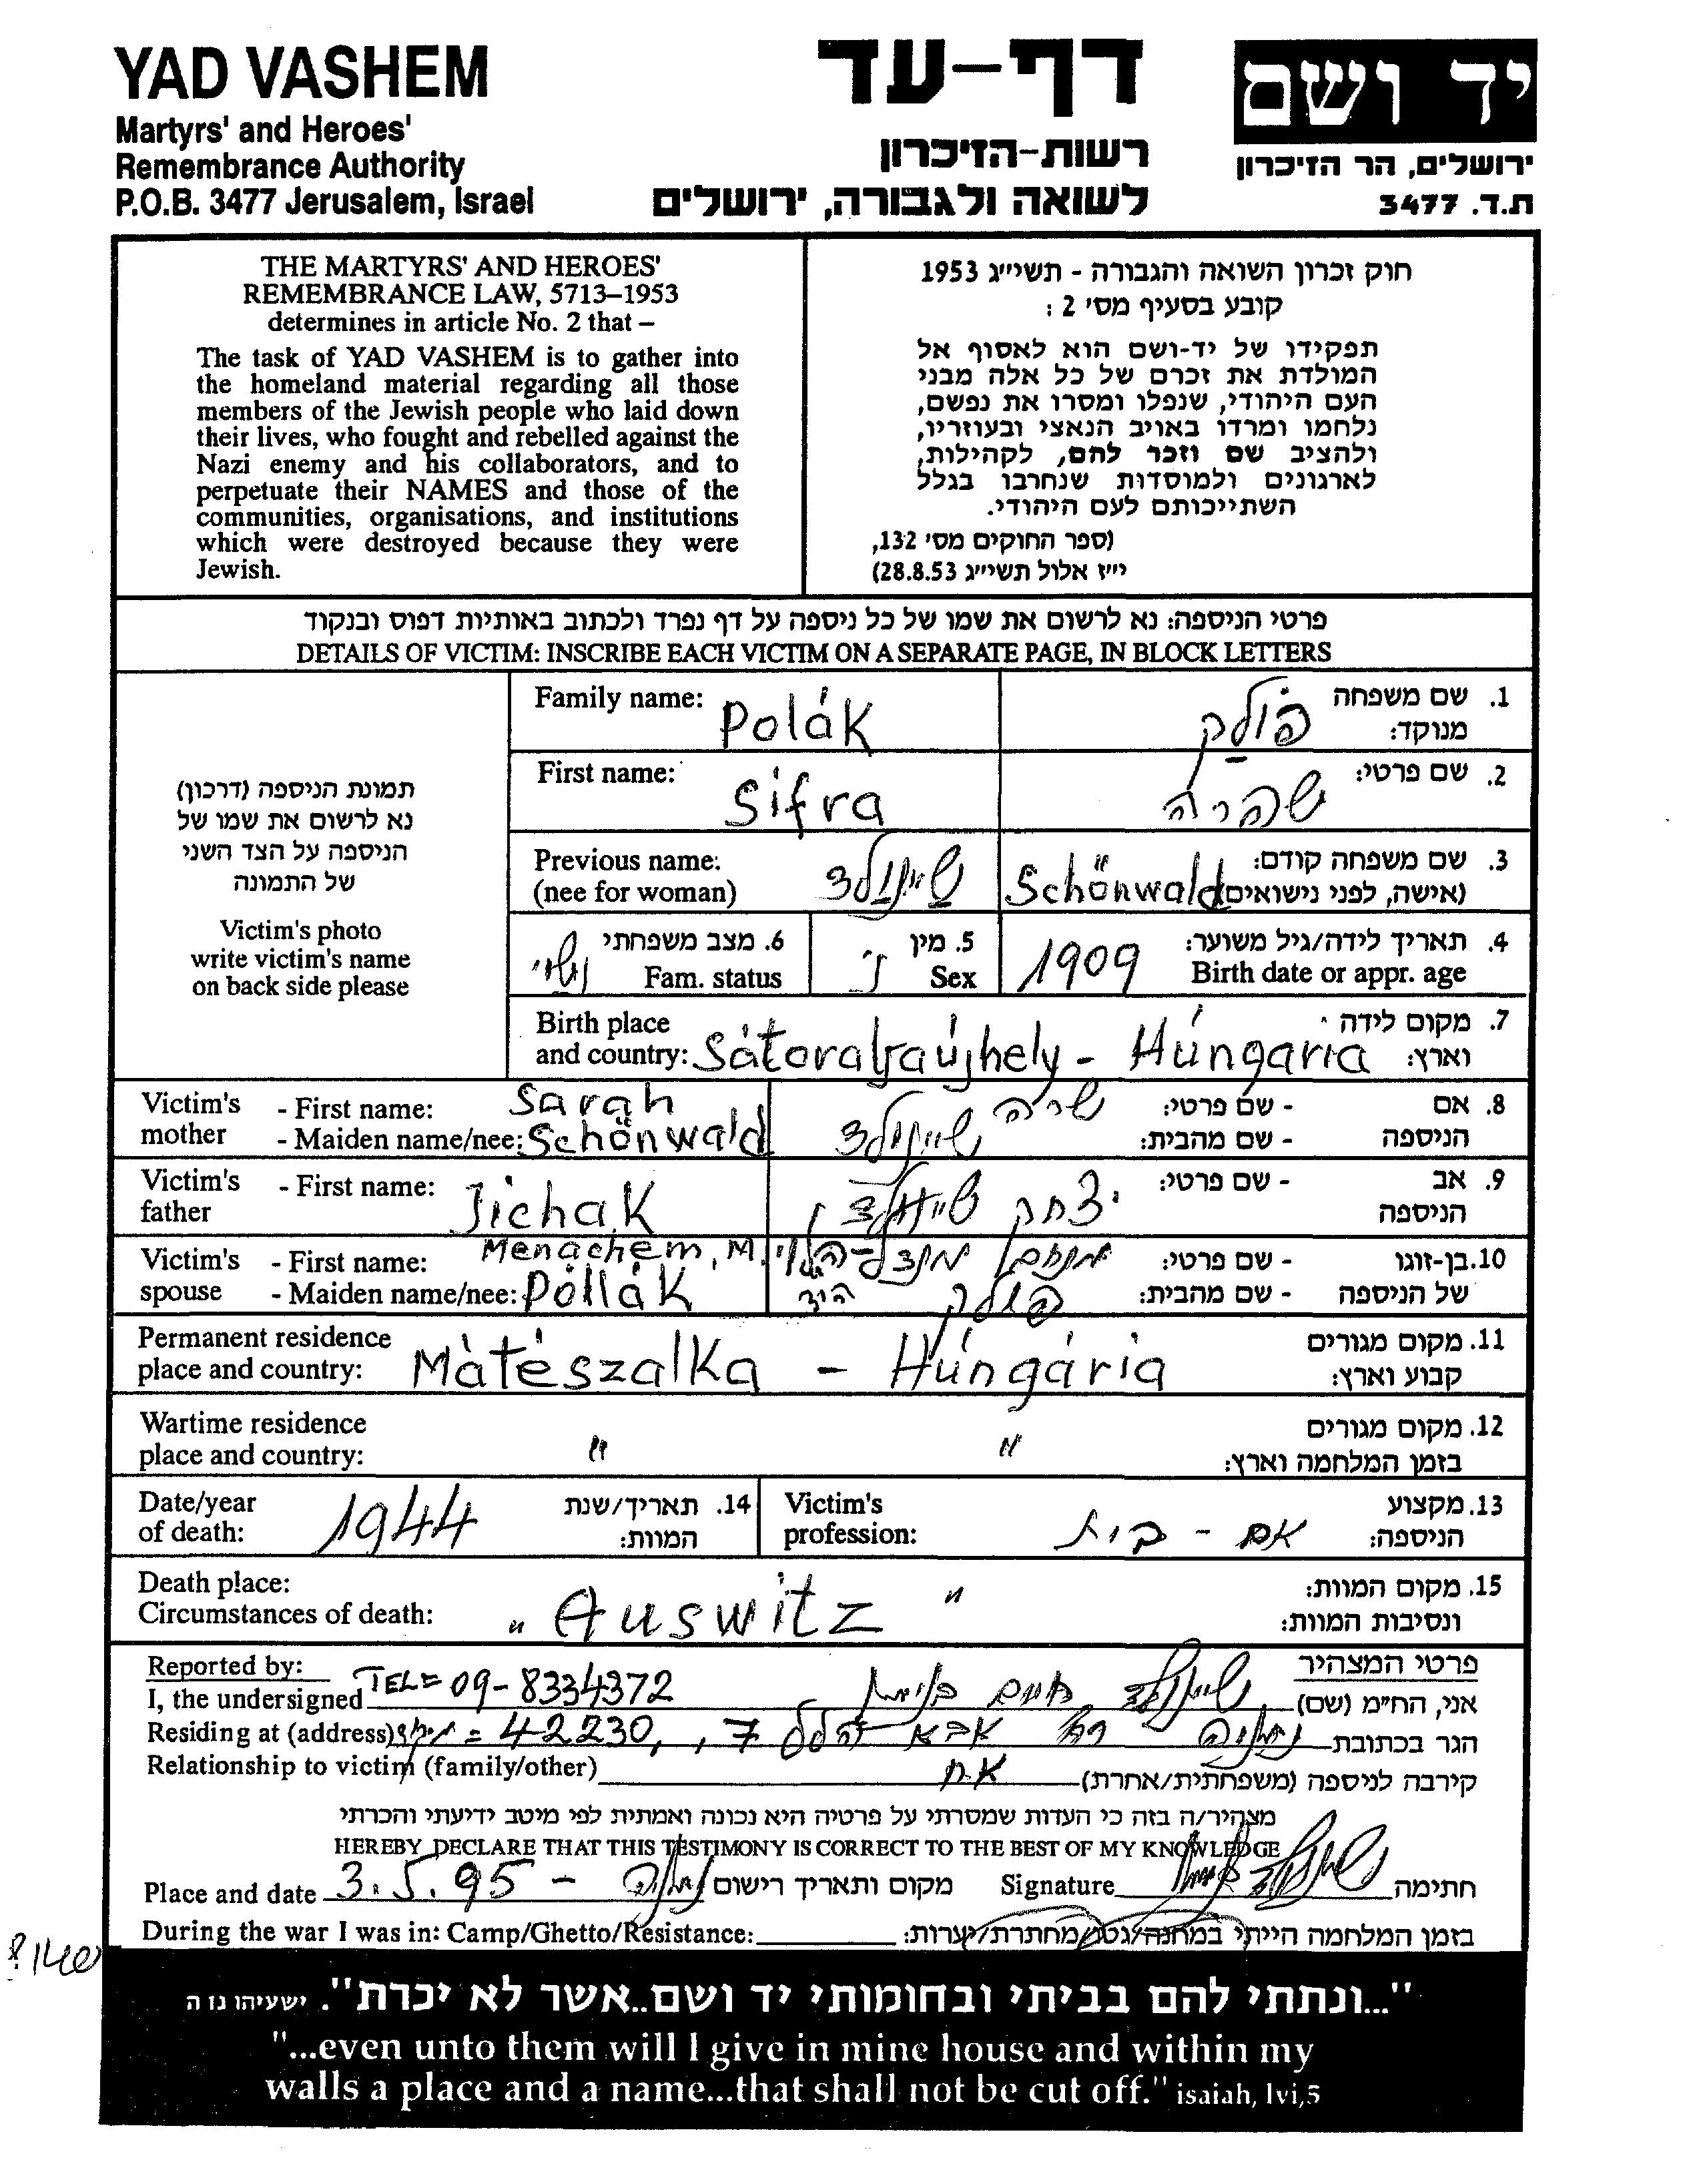 YAD VASHEM
Martyrs' and Heroes'
Remembrance Authority
P.O.B. 3477 Jerusalem, Israel
דף-עד
רשות-הזיכרון
לשואה ולגבורה, ירושלים
יד ושם
ירושלים, הר הזיכרון
ת.ד. 3477
THE MARTYRS' AND HEROES'
REMEMBRANCE LAW, 5713–1953
determines in article No. 2 that –
The task of YAD VASHEM is to gather into
the homeland material regarding all those
members of the Jewish people who laid down
their lives, who fought and rebelled against the
Nazi enemy and his collaborators, and to
perpetuate their NAMES and those of the
communities, organisations, and institutions
which were destroyed because they were
Jewish.
חוק זכרון השואה והגבורה - תשי״ג 1953
קובע בסעיף מס׳ 2 :
תפקידו של יד-ושם הוא לאסוף אל
המולדת את זכרם של כל אלה מבני
העם היהודי, שנפלו ומסרו את נפשם,
נלחמו ומרדו באויב הנאצי ובעוזריו,
ולהציב שם וזכר להם, לקהילות,
לארגונים ולמוסדות שנחרבו בגלל
השתייכותם לעם היהודי.
(ספר החוקים מס׳ 132,
י״ז אלול תשי״ג 28.8.53)
פרטי הניספה: נא לרשום את שמו של כל ניספה על דף נפרד ולכתוב באותיות דפוס ובנקוד
DETAILS OF VICTIM: INSCRIBE EACH VICTIM ON A SEPARATE PAGE, IN BLOCK LETTERS
תמונת הניספה (דרכון)
נא לרשום את שמו של
הניספה על הצד השני
של התמונה
Victim's photo
write victim's name
on back side please
Family name: Polák פולק 1. שם משפחה
מנוקד:
First name: Sifra שפרה 2. שם פרטי:
Previous name: 3. שם משפחה קודם:
(nee for woman) שיינולד Schönwald (אישה, לפני נישואים)
6. מצב משפחתי 5. מין 4. תאריך לידה/גיל משוער:
Fam. status נשוי Sex נ 1909 Birth date or appr. age
Birth place 7. מקום לידה
and country: Sátoraljaújhely - Húngaria וארץ:
Victim's - First name: Sarah שרה - שם פרטי: 8. אם
mother - Maiden name/nee: Schönwald שיינולד - שם מהבית: הניספה
Victim's - First name: Jichak יצחק - שם פרטי: 9. אב
father הניספה
Victim's - First name: Menáchem, M. מנחם - שם פרטי: 10. בן-זוגו
spouse - Maiden name/nee: Póllák פולק - שם מהבית: של הניספה
Permanent residence 11. מקום מגורים
place and country: Mátészalka - Húngária קבוע וארץ:
Wartime residence 12. מקום מגורים
place and country: " " בזמן המלחמה וארץ:
Date/year 14. תאריך/שנת Victim's 13. מקצוע
of death: 1944 המוות: profession: אם - בית הניספה:
Death place: 15. מקום המוות:
Circumstances of death: "Auswitz" ונסיבות המוות:
Reported by: פרטי המצהיר
I, the undersigned TEL= 09-8334372 שיינולד חיים אני, הח״מ (שם)
Residing at (address) = 42230, , 7 הלל אבא רח נתניה הגר בכתובת
Relationship to victim (family/other) אח קירבה לניספה (משפחתית/אחרת)
מצהיר/ה בזה כי העדות שמסרתי על פרטיה היא נכונה ואמתית לפי מיטב ידיעתי והכרתי
HEREBY DECLARE THAT THIS TESTIMONY IS CORRECT TO THE BEST OF MY KNOWLEDGE
Place and date 3.5.95 - נתניה מקום ותאריך רישום Signature חתימה
During the war I was in: Camp/Ghetto/Resistance: בזמן המלחמה הייתי במחנה/גטו/מחתרת/יערות:
"...ונתתי להם בביתי ובחומותי יד ושם..אשר לא יכרת". ישעיהו נו ה
"...even unto them will I give in mine house and within my
walls a place and a name...that shall not be cut off." isaiah, lvi,5